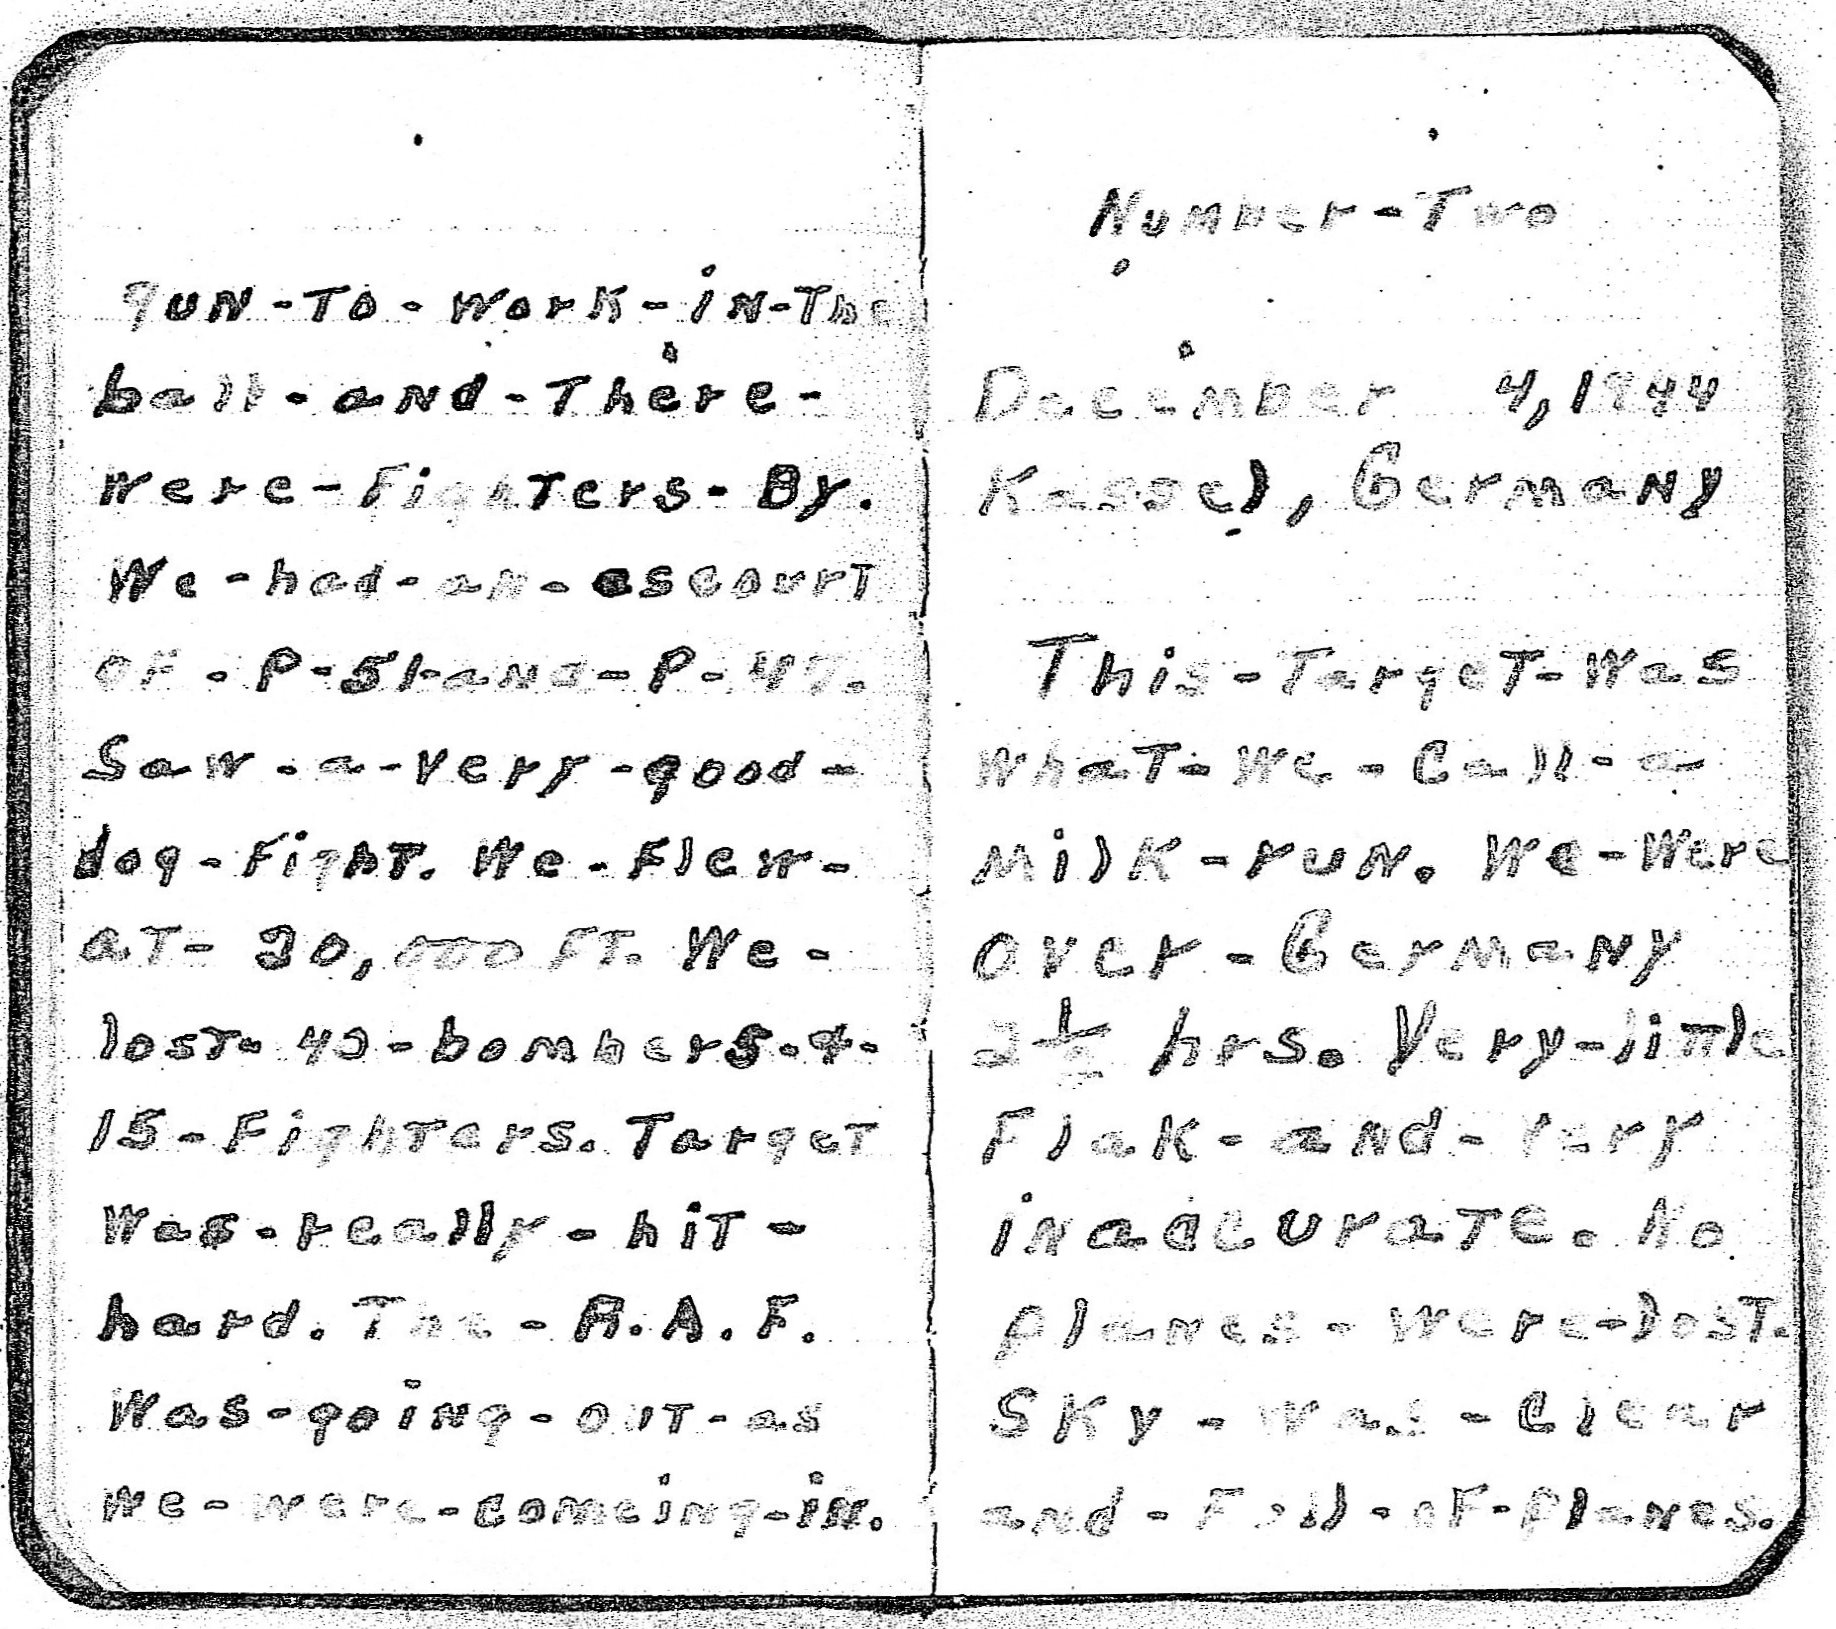 gun-To-work-in-The
ball-and-There-
were-Fighters-By.
We-had-an-escourt
of-P-51-and-P-47.
Saw-a-very-good-
dog-Fight. We-Flew-
at-30,000 FT. We-
lost-40-bombers-&-
15-Fighters. Target
was-really-hit-
hard. The-R.A.F.
Was-going-out-as
we-were-comeing-in.
Number-Two
December 4, 1944
Kassel, Germany
This-Target-was
what-we-call-a-
milk-run. We-were
over-Germany
2½ hrs. Very-little
Flak-and-very
inaccurate. No
planes-were-lost.
Sky-was-clear
and-Full-of-planes.